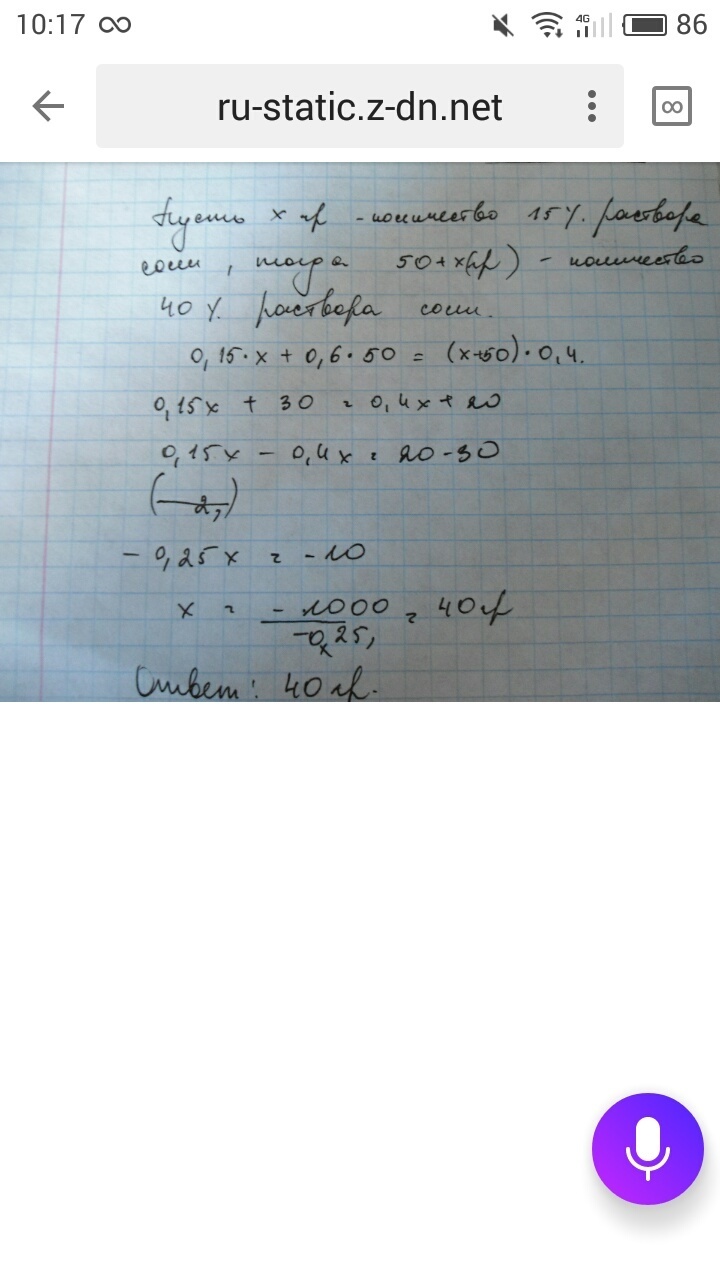 10:17
4G
86
ru-static.z-dn.net
Пусть x гр - количество 15%. раствора
соли, тогда 50+x(гр) - количество
40%. раствора соли.
0,15·x + 0,6·50 = (x+50)·0,4.
0,15x + 30 = 0,4x + 20
0,15x - 0,4x = 20-30
- 0,25x = -10
x = -1000 / -0,25, = 40 гр
Ответ: 40 гр.